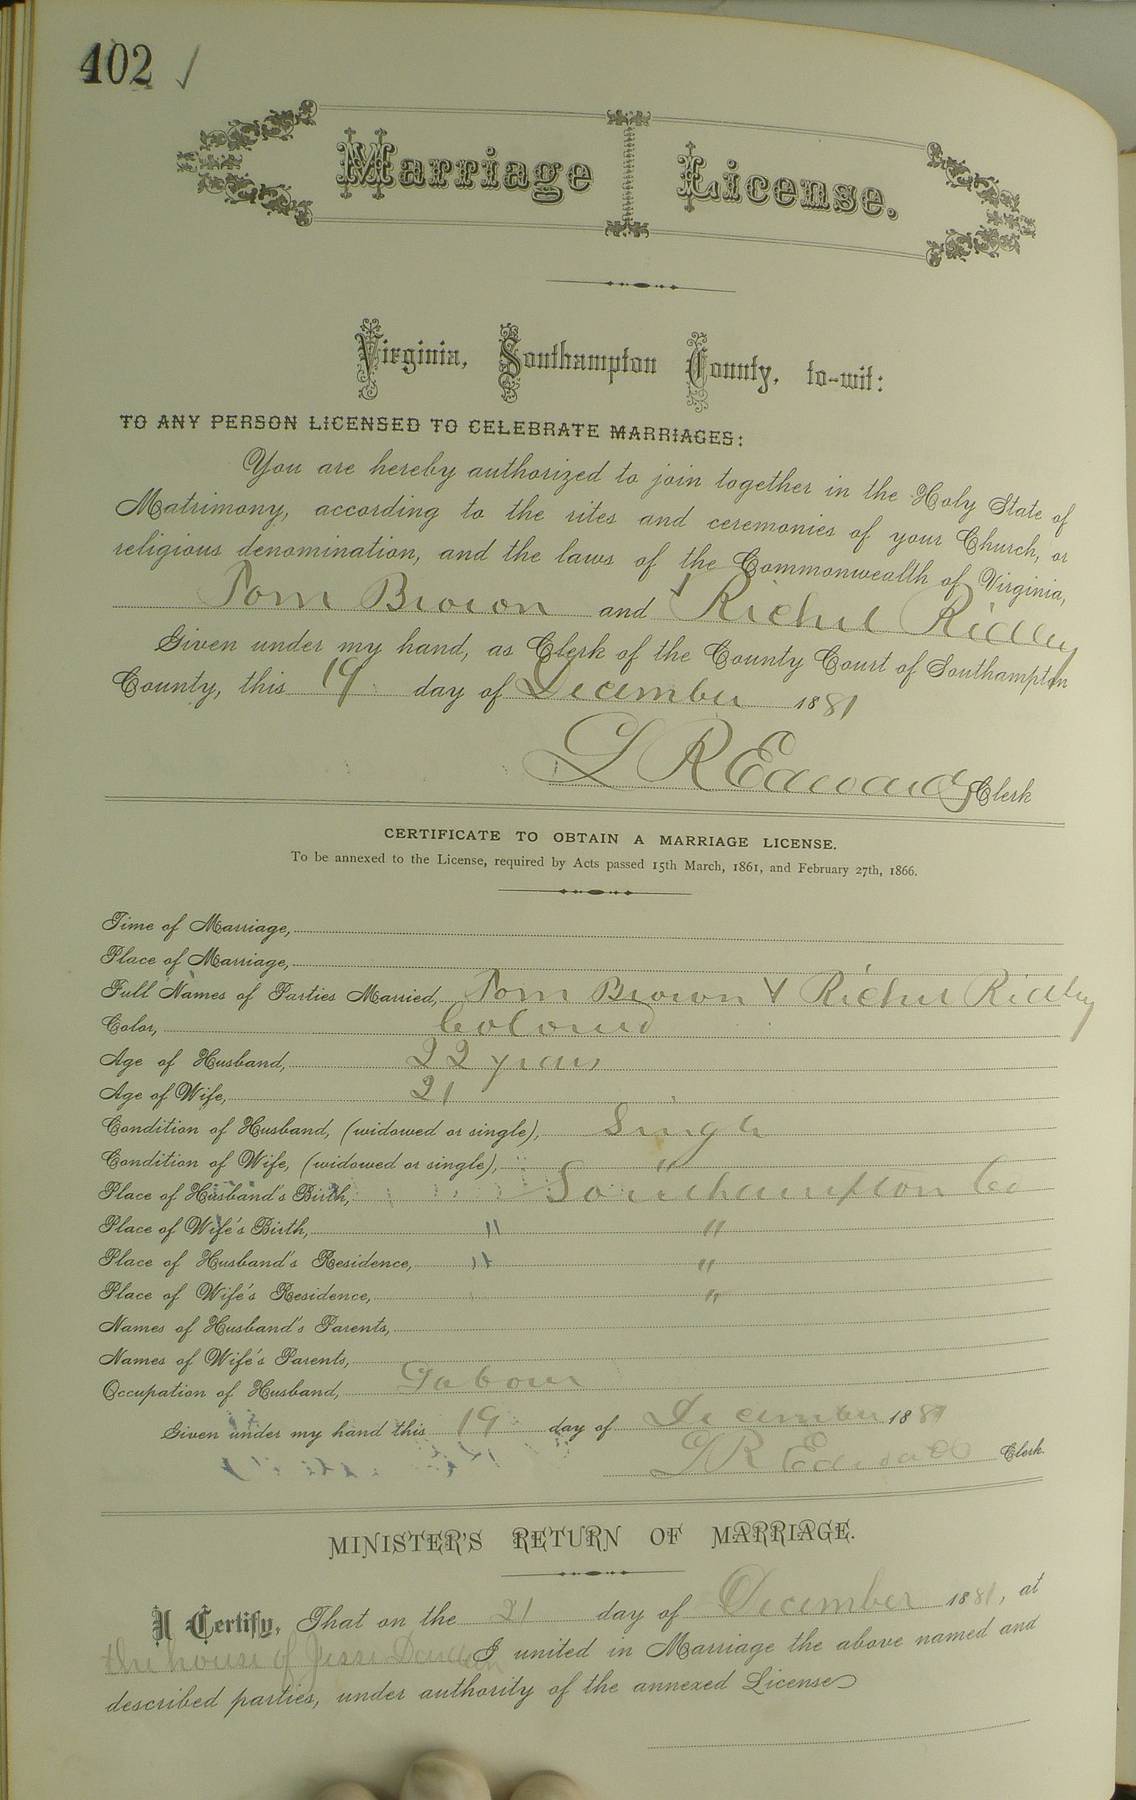 402 ✓
Marriage License.
Virginia, Southampton County, to-wit:
TO ANY PERSON LICENSED TO CELEBRATE MARRIAGES:
You are hereby authorized to join together in the Holy State of
Matrimony, according to the rites and ceremonies of your Church, or
religious denomination, and the laws of the Commonwealth of Virginia,
Tom Brown and Richel Ridley
Given under my hand, as Clerk of the County Court of Southampton
County, this 19 day of December 1881
L R Edwards Clerk
CERTIFICATE TO OBTAIN A MARRIAGE LICENSE.
To be annexed to the License, required by Acts passed 15th March, 1861, and February 27th, 1866.
Time of Marriage,
Place of Marriage,
Full Names of Parties Married, Tom Brown & Richel Ridley
Color, Colored
Age of Husband, 22 years
Age of Wife, 21
Condition of Husband, (widowed or single), Single
Condition of Wife, (widowed or single), "
Place of Husband's Birth, Southampton Co
Place of Wife's Birth, " "
Place of Husband's Residence, " "
Place of Wife's Residence, "
Names of Husband's Parents,
Names of Wife's Parents,
Occupation of Husband, Labour
Given under my hand this 19 day of December 1881
L R Edwards Clerk.
MINISTER'S RETURN OF MARRIAGE.
I Certify, That on the 21 day of December 1881, at
the house of Jesse I united in Marriage the above named and
described parties, under authority of the annexed License